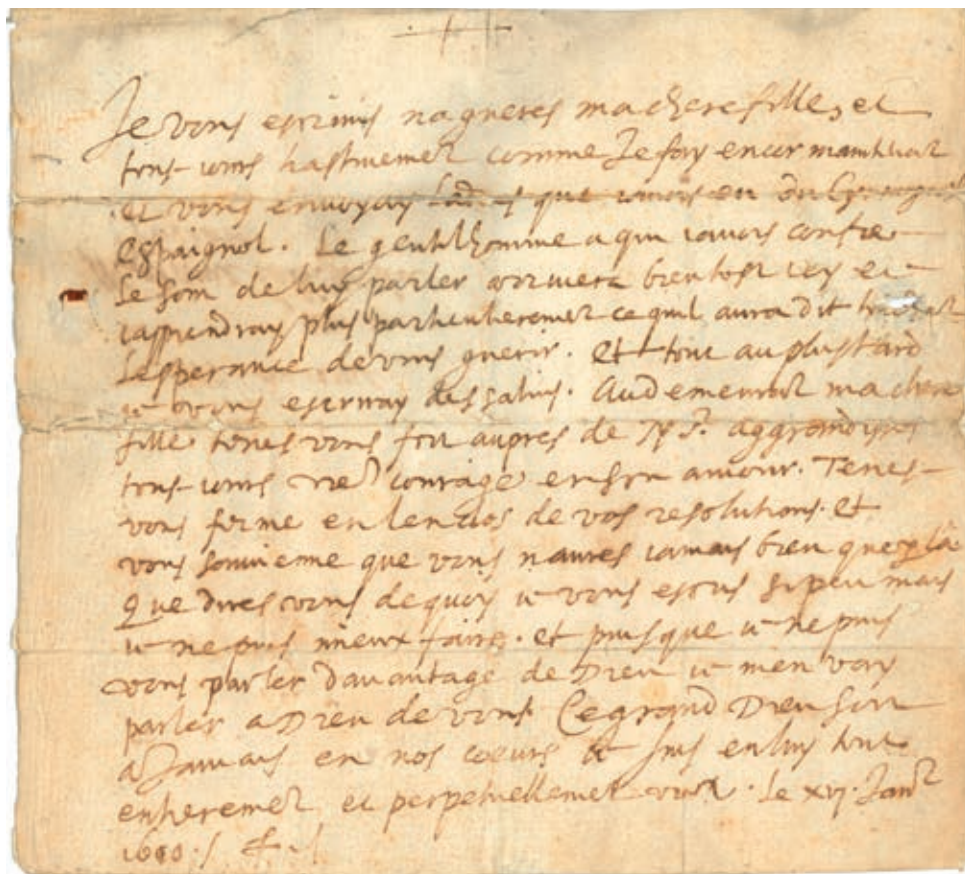 Je vous escrivis nagueres ma chere fille, et
tous-jours hastivemēt comme Je fay encor maintenāt
et vous envoyay que javois eu du
Espaignol. Le gentilhomme a qui javois confié
le soin de luy parler arrivera bientost icy et
japprendray plus particulieremēt ce quil aura dit
lesperance de vous guerir. Et tout au plus tard
je vous escrivray des Salins. Au demeurāt ma chere
fille tenes vous fort aupres de N. S.
tous-jours vr̃e courage en son amour. Tenes-
vous ferme en lenclos de vos resolutions. et
vous souvienne que vous naures jamais bien que la
Que dires vous dequoy je vous escris si peu mais
je ne puis mieux faire. et puis que je ne puis
vous parler davantage de Dieu je men vay
parler a Dieu de vous. Ce grand Dieu soit
a Jamais en nos cœurs Je suis en luy tout
entieremēt et perpetuellemēt vr̃e. Le xvj. Janr